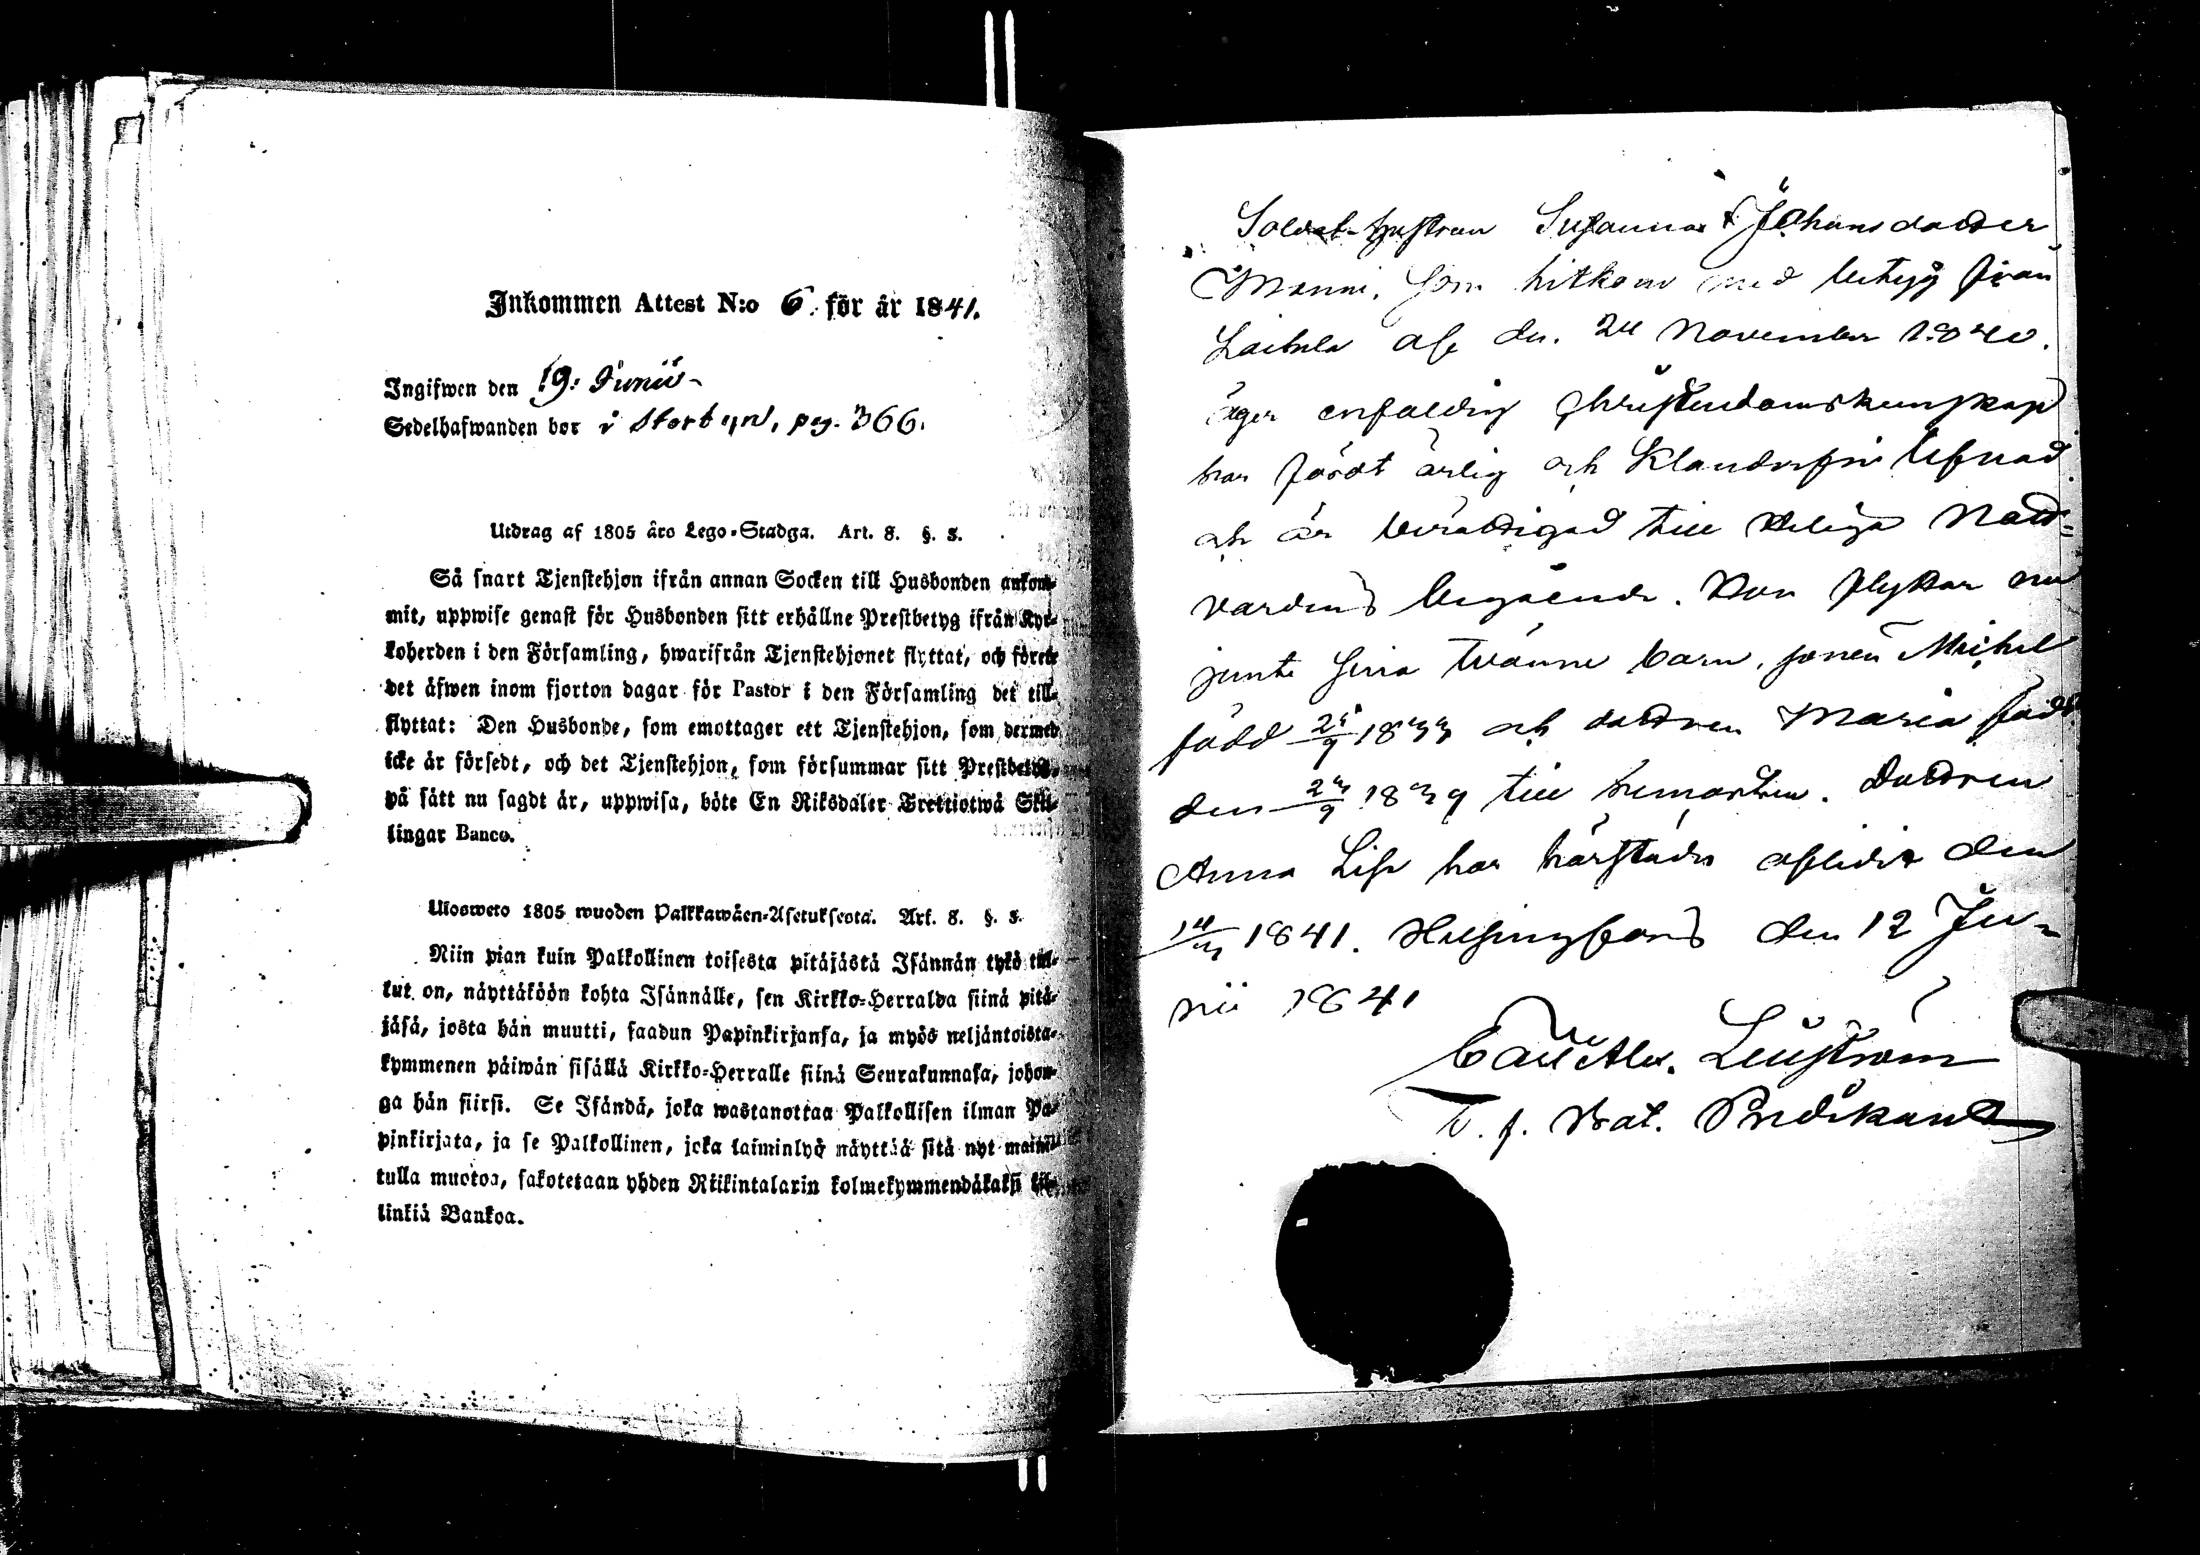 Inkommen Attest N:o 6. för år 1841.
Ingifwen den 19: Junii
Sedelhafwanden bor i Storbyn, pag. 366.
Utdrag af 1805 års Lego-Stadga. Art. 8. §. 3.
Så snart Tjenstehjon ifrån annan Socken till Husbonden ankom-
mit, uppwise genast för Husbonden sitt erhållne Prestbetyg ifrån Kyr-
koherden i den Församling, hwarifrån Tjenstehjonet flyttat, och förete
det äfwen inom fjorton dagar för Pastor i den Församling det till-
flyttat: Den Husbonde, som emottager ett Tjenstehjon, som dermed
icke är försedt, och det Tjenstehjon, som försummar sitt Prestbetyg,
på sätt nu sagdt är, uppwisa, böte En Riksdaler Trettiotwå Skil-
lingar Banco.
Uloswето 1805 wuoden Palkkawäen-Asetuksesta. Art. 8. §. 3.
Niin pian kuin Palkollinen toisesta pitäjästä Isännän tykö tul-
lut on, näyttäköön kohta Isännälle, sen Kirkko-Herralda siinä pitä-
jäsä, josta hän muutti, saadun Papinkirjansa, ja myös neljäntoista-
kymmenen päiwän sisällä Kirkko-Herralle siinä Seurakunnasa, johon-
ga hän siirsi. Se Isändä, joka wastanottaa Palkollisen ilman Pa-
pinkirjata, ja se Palkollinen, joka laiminlyö näyttää sitä nyt mainit-
tulla muotoa, sakotetaan yhden Riikintalarin kolmekymmendäkaksi kil-
linkiä Bankoa.
Soldat-hustrun Susanna Johansdotter
Manni, som hitkom med betyg från
Laihela af den 24 November 1840.
äger enfaldig Christendomskunskap
har fördt ärlig och klanderfri lefnad
och är berättigad till Heliga Natt-
vardens begående. Hon flyttar nu
jemte sina tvänne barn, sonen Michel
född 1833 och dottren Maria född
den 1839 till hemorten. Dottren
Anna Lisa har härstädes aflidit den
1841. Helsingfors den 12 Ju-
nii 1841
Carl Alex.
T. f. Bat. Predikant